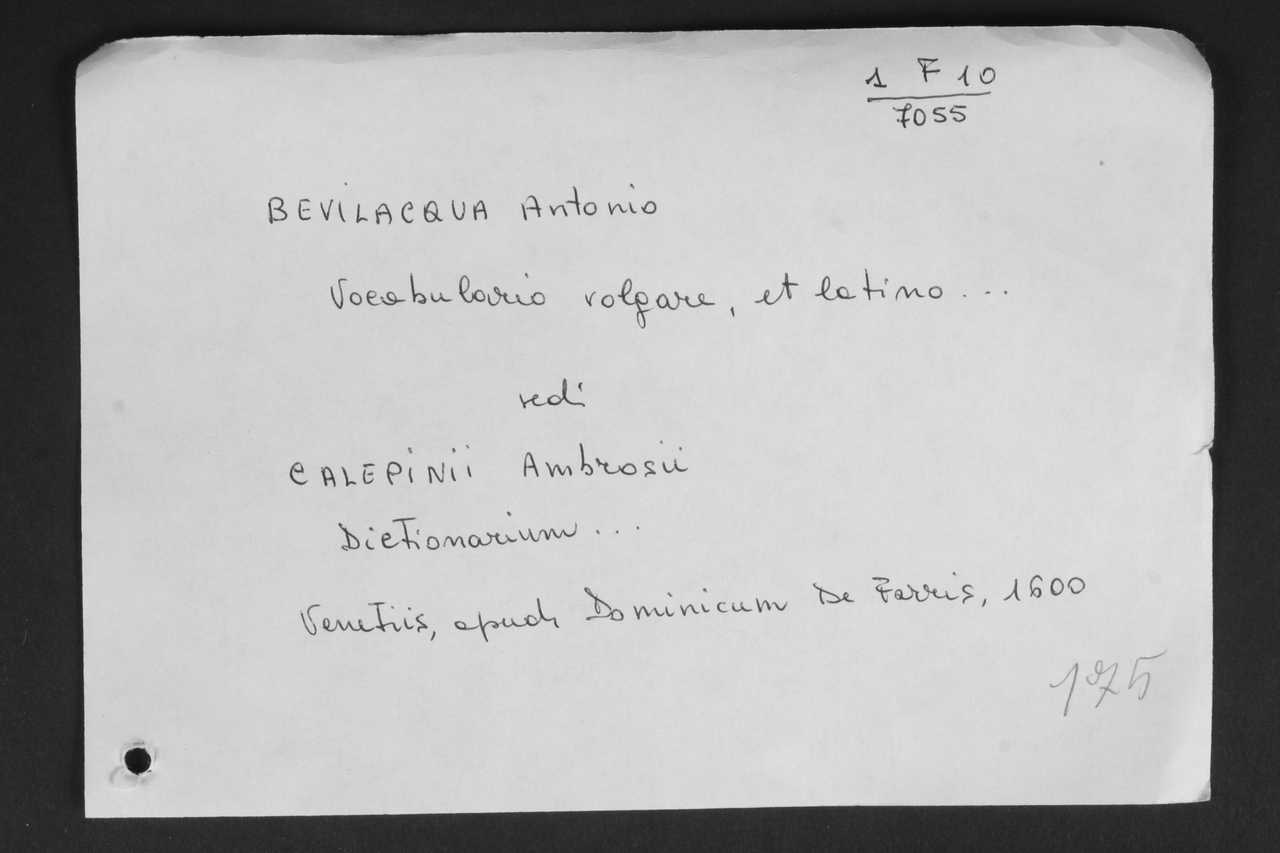 1 F 10
7055
BEVILACQUA Antonio
Vocabulario volgare, et latino ...
vedi
CALEPINII Ambrosii
Dictionarium ...
Venetiis, apud Dominicum De Farris, 1600
175